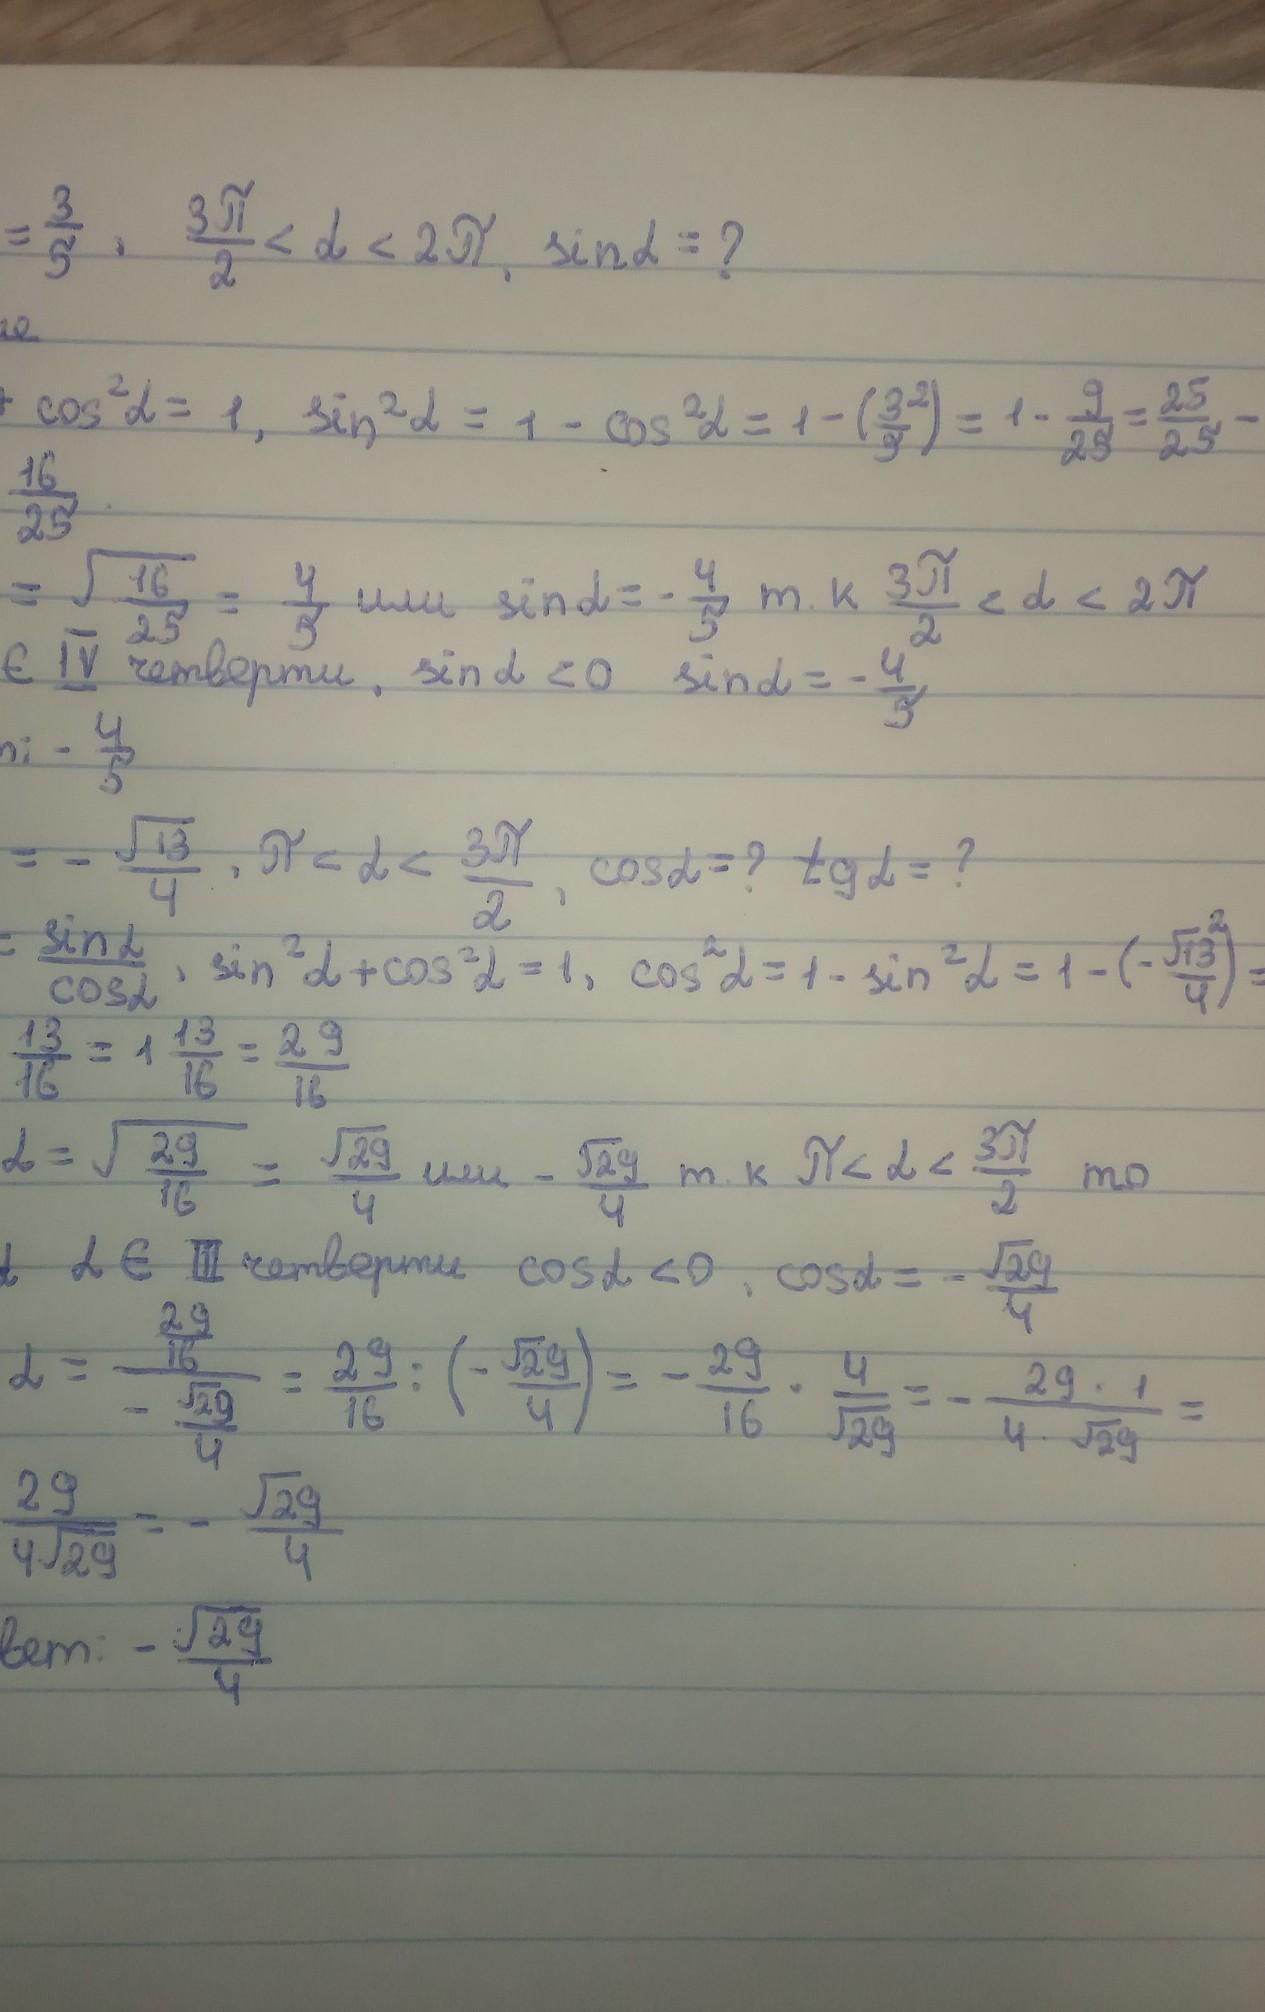 = 3/5, 3π/2 < α < 2π, sinα = ?
ие
+ cos²α = 1, sin²α = 1 - cos²α = 1 - (3²/5) = 1 - 9/25 = 25/25 -
16/25
= √(16/25) = 4/5 или sinα = - 4/5 т.к 3π/2 < α < 2π
∈ IV четверти, sinα < 0 sinα = - 4/5
т: - 4/5
= - √13/4, π < α < 3π/2, cosα = ? tgα = ?
= sinα/cosα, sin²α + cos²α = 1, cos²α = 1 - sin²α = 1 - (- √13²/4) =
13/16 = 1 13/16 = 29/16
α = √(29/16) = √29/4 или - √29/4 т.к π < α < 3π/2 то
α α ∈ III четверти cosα < 0, cosα = - √29/4
α = (29/16)/(- √29/4) = 29/16 : (- √29/4) = - 29/16 · 4/√29 = - (29 · 1)/(4 · √29) =
29/(4√29) = - √29/4
вет: - √29/4